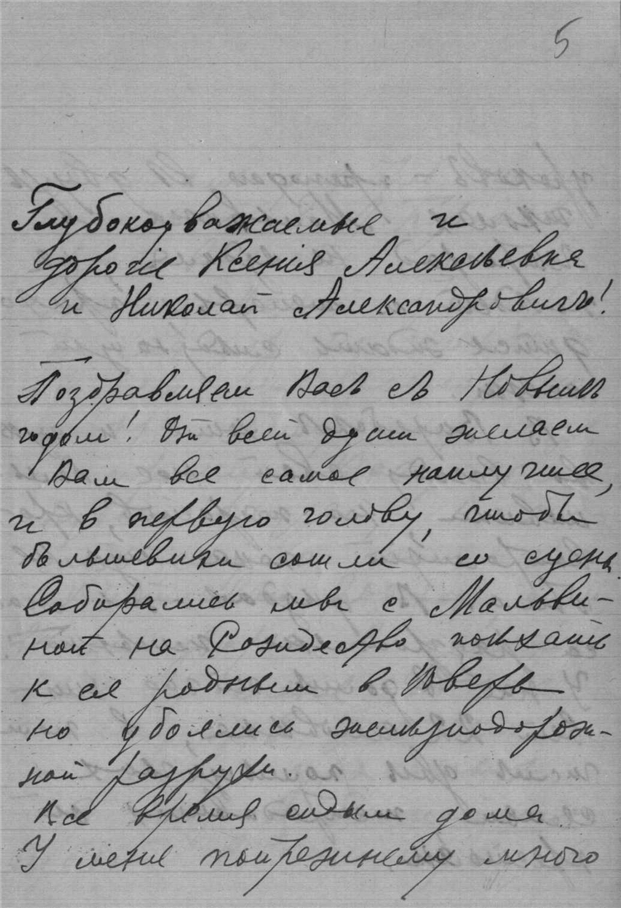 5
Глубокоуважаемые и
дорогіе Ксенія Алексѣевна
и Николай Александровичъ!
Поздравляем Васъ съ Новымъ
годом! От всей души желаем
Вам все самое наилучшее,
и в первую голову, чтобы
большевики сошли со сцены.
Собирались мы с Мальви-
ной на Рождество поѣхать
к ея родным в Тверь
но убоялись желѣзнодорож-
ной разрухи.
Все время сидим дома
У меня попрежнему много